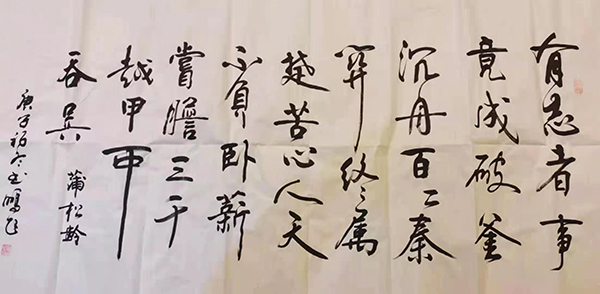 有志者事
竟成破釜
沉舟百二秦
關终属
楚苦心人天
不負卧薪
嘗膽三千
越甲可
吞吳 蒲松龄
庚子初冬